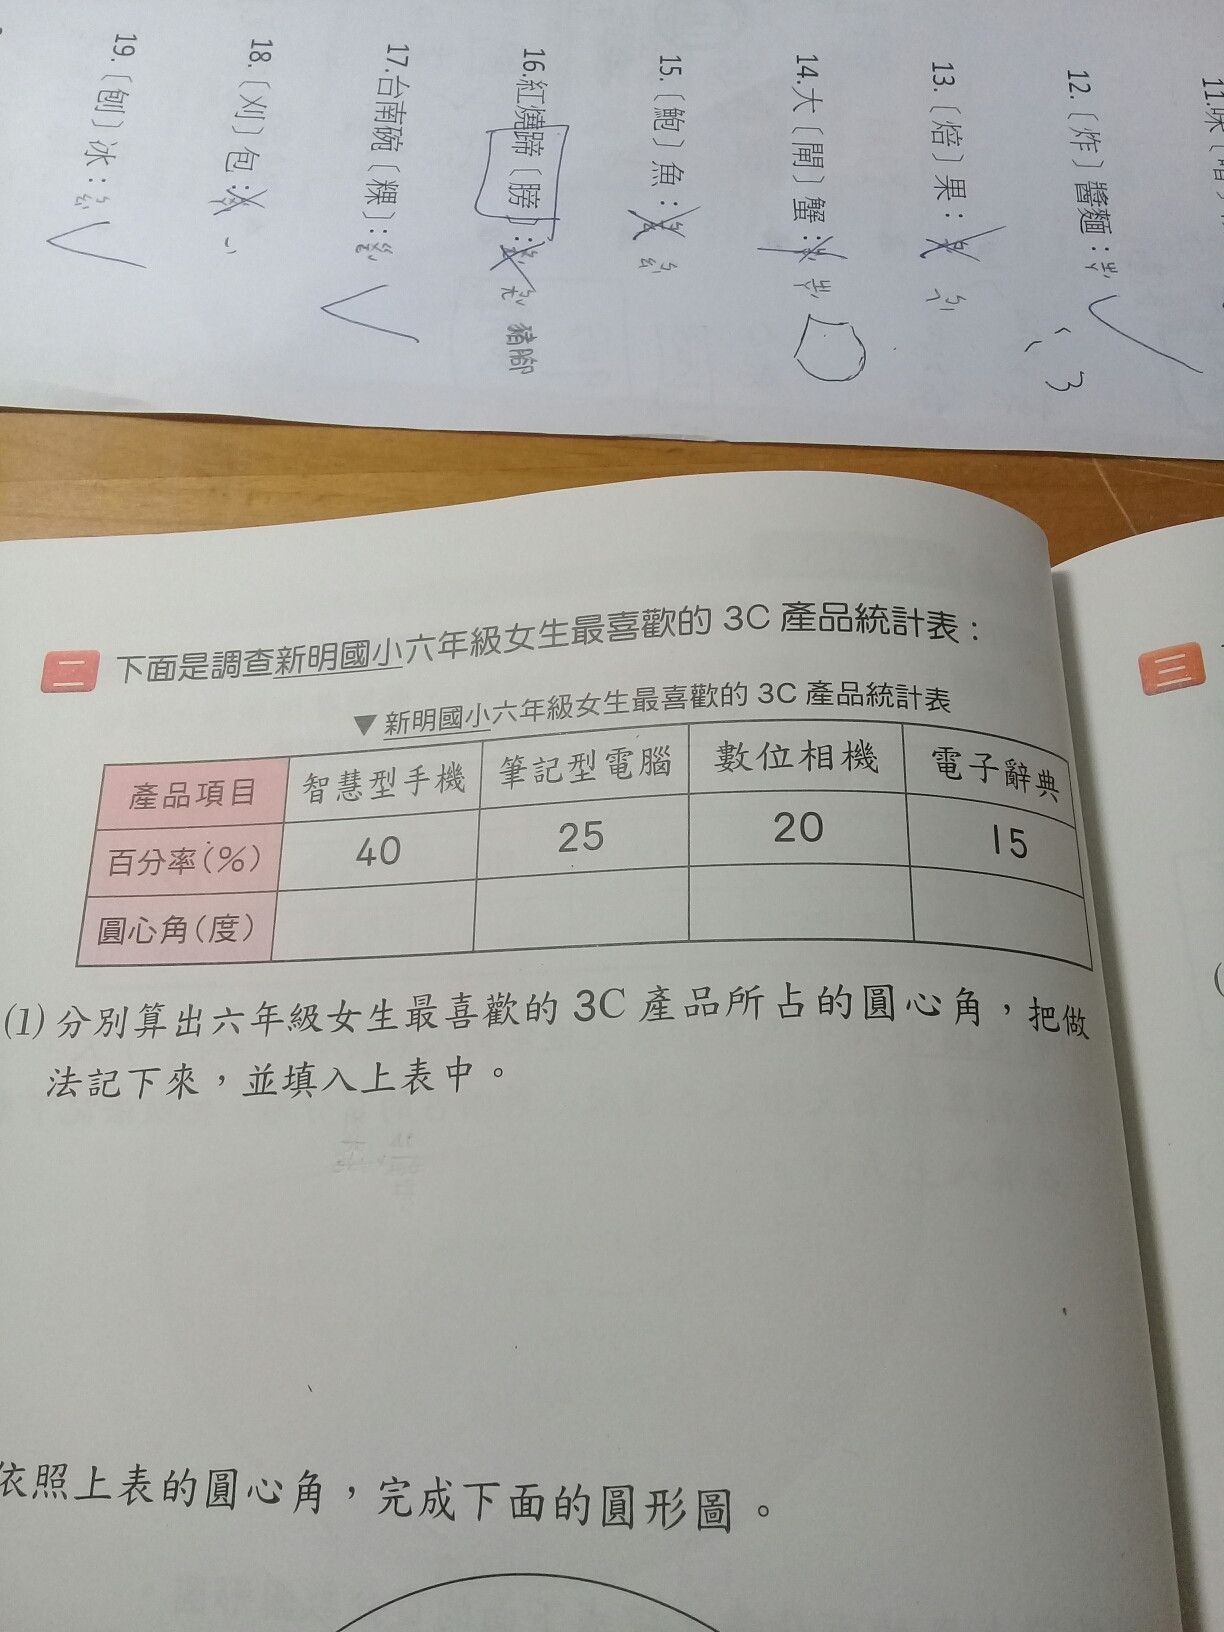 11.味
12.〔炸〕醬麵：ㄓㄚˋ
13.〔焙〕果：ㄅㄟˋ
14.大〔閘〕蟹：ㄓㄚˊ
15.〔鮑〕魚：ㄅㄠˋ
16.紅燒蹄〔膀〕：ㄅㄤˇ 豬腳
17.台南碗〔粿〕：ㄍㄨㄛˇ
18.〔刈〕包：ㄧˋ
19.〔刨〕冰：ㄅㄠˋ
二 下面是調查新明國小六年級女生最喜歡的 3C 產品統計表：
▼ 新明國小六年級女生最喜歡的 3C 產品統計表
產品項目 智慧型手機 筆記型電腦 數位相機 電子辭典
百分率(%) 40 25 20 15
圓心角(度)
(1) 分別算出六年級女生最喜歡的 3C 產品所占的圓心角，把做
法記下來，並填入上表中。
依照上表的圓心角，完成下面的圓形圖。
三